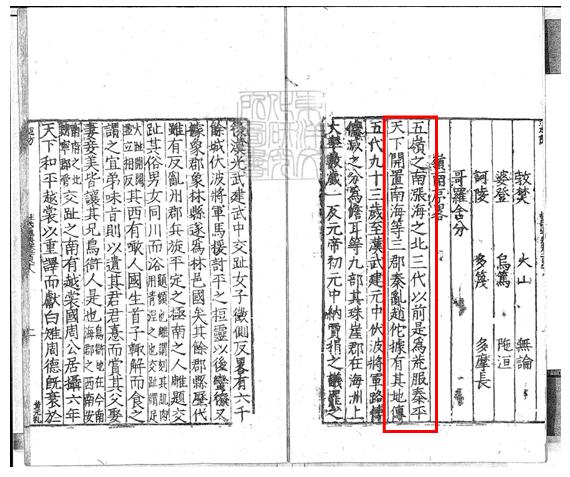 敦焚 火山 無論
婆登 烏篤 陁洹
訶陵 多篾 多摩長
哥羅舍分
嶺南序畧
五嶺之南漲海之北三代以前是爲荒服秦平
天下開置南海等三郡秦亂趙佗據有其地傳
五代九十三歲至漢武建元中伏波將軍路博
德滅之分爲儋耳等九郡其珠崖郡在海洲上
大率數歲一反元帝初元中納賈捐之議罷之
後漢光武建武中交趾女子徵側反畧有六十
餘城伏波將軍馬援討平之桓靈以後蠻獠又
據象郡象林縣遂爲林邑國矣其餘郡縣歷代
雖有反亂州郡兵旋平定之極南之人雕題交
趾其俗男女同川而浴
其西有噉人國生首子輒解而食之
謂之宜弟味旨則以遺其君君憙而賞其父娶
妻妾美皆讓其兄烏滸人是也
交趾之南有越裳國周公居攝六年
天下和平越裳以重譯而獻白雉周德旣衰於